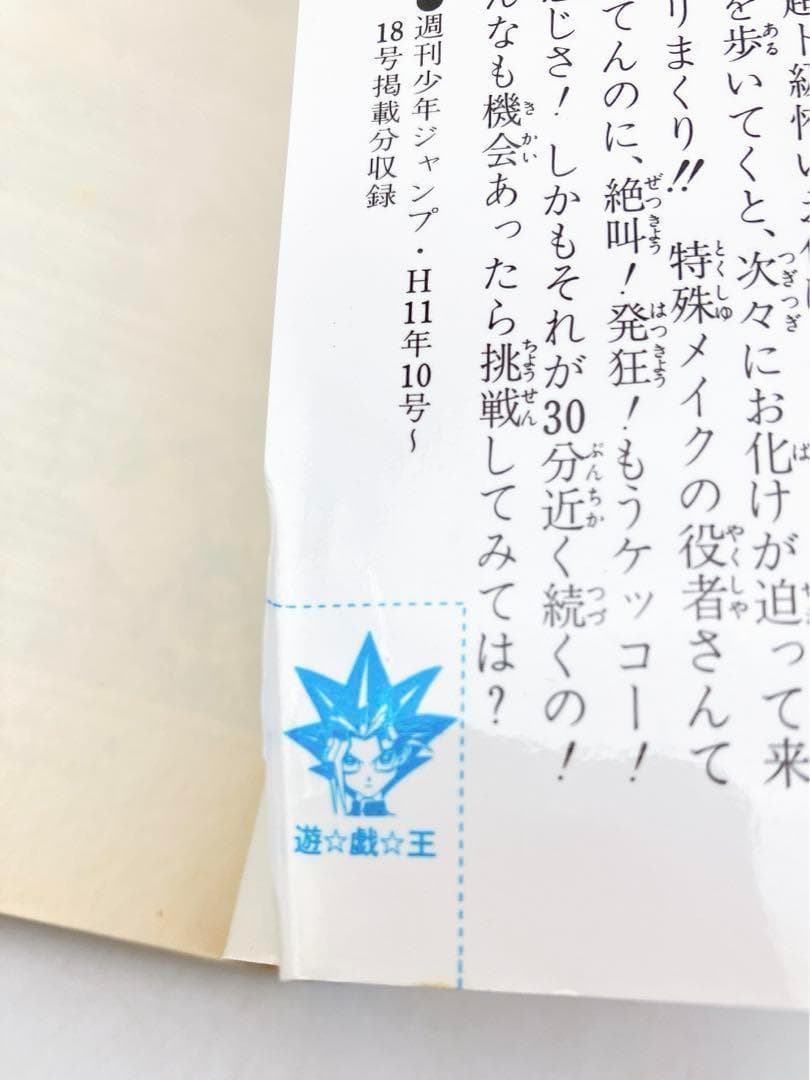 を歩いてくと、次々にお化けが迫って来
リまくり!! 特殊メイクの役者さんて
てんのに、絶叫！発狂！もうケッコー！
じさ！しかもそれが30分近く続くの！
んなも機会あったら挑戦してみては？
●週刊少年ジャンプ・H11年10号〜
18号掲載分収録
遊☆戯☆王